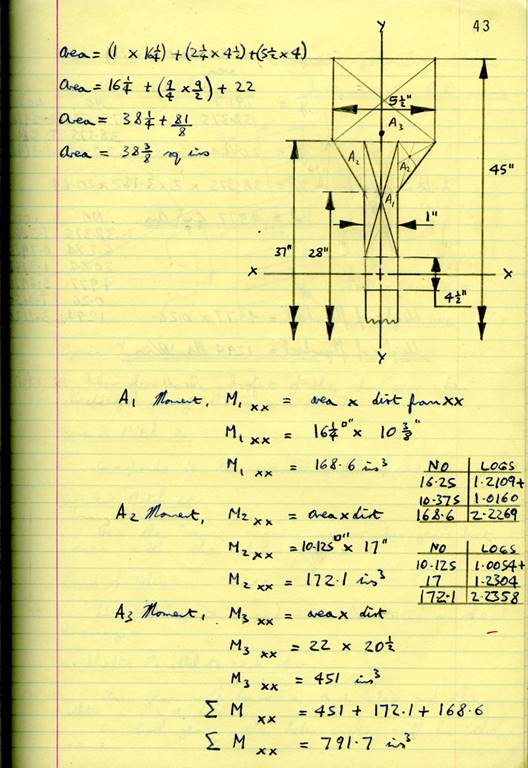 43
Area = (1 x 16 1/4) + (2 1/4 x 4 1/2) + (5 1/2 x 4)
Area = 16 1/4 + (9/4 x 9/2) + 22
Area = 38 1/4 + 81/8
Area = 38 3/8 sq ins
Y
5 1/2"
A3
A2
A2
A1
45"
37"
28"
1"
X
X
4 1/2"
Y
A1 Moment, M1 xx = area x dist from XX
M1 xx = 16 1/4 □" x 10 3/8"
M1 xx = 168.6 ins³
NO LOGS
16.25 1.2109+
10.375 1.0160
168.6 2.2269
A2 Moment, M2 xx = area x dist
M2 xx = 10.125 □" x 17"
M2 xx = 172.1 ins³
NO LOGS
10.125 1.0054+
17 1.2304
172.1 2.2358
A3 Moment, M3 xx = area x dist
M3 xx = 22 x 20 1/2
M3 xx = 451 ins³
Σ M xx = 451 + 172.1 + 168.6
Σ M xx = 791.7 ins³